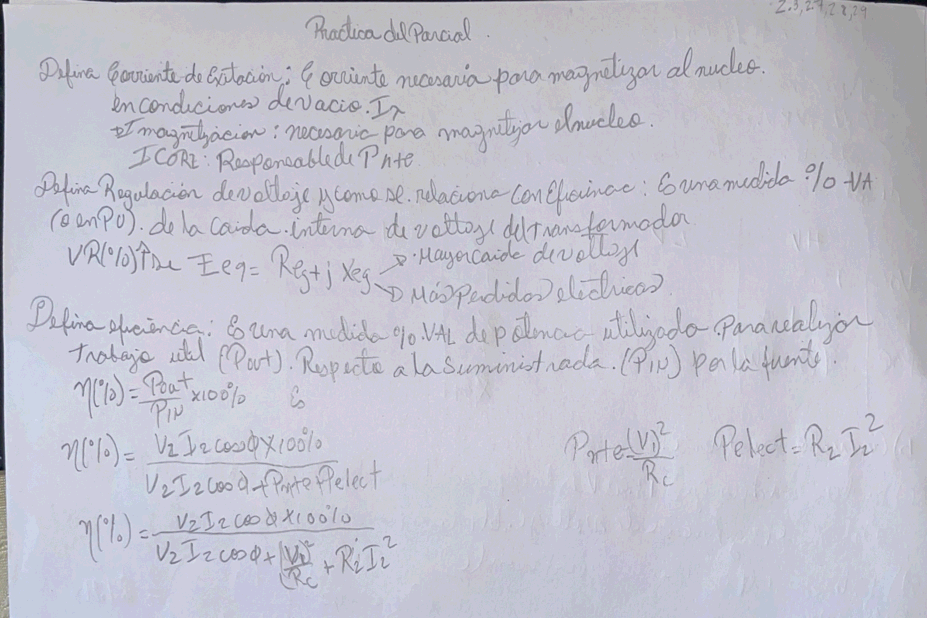 2.3, 27, 28, 29
Practica del Parcial.
Defina Corriente de Exitación: Corriente necesaria para magnetizar al nucleo.
en condiciones de vacio.
I magnetizacion: necesario para magnetizar el nucleo.
I CORE: Responsable de Pnte
Defina Regulación de voltaje y como se relaciona con Eficiencia: Es una medida % VA
(o en PU). de la caida interna de voltaje del transformador
VR(%)↑De Zeq = Req + j Xeq → Mayor caida de voltaje
→ Más Perdidas eléctricas
Defina eficiencia: Es una medida % VAL de potencia utilizado Para realizar
trabajo útil (Pout). Respecto a la Suministrada. (PIN) por la fuente.
η(%) = Pout/PIN x100% Es
η(%) = V2 I2 cosϕ x100% / V2 I2 cosϕ + Pnte + Pelect
Pnte = (V1)²/Rc Pelect = R2 I2²
η(%) = V2 I2 cosϕ x100% / V2 I2 cosϕ + (V1)²/Rc + R2 I2²